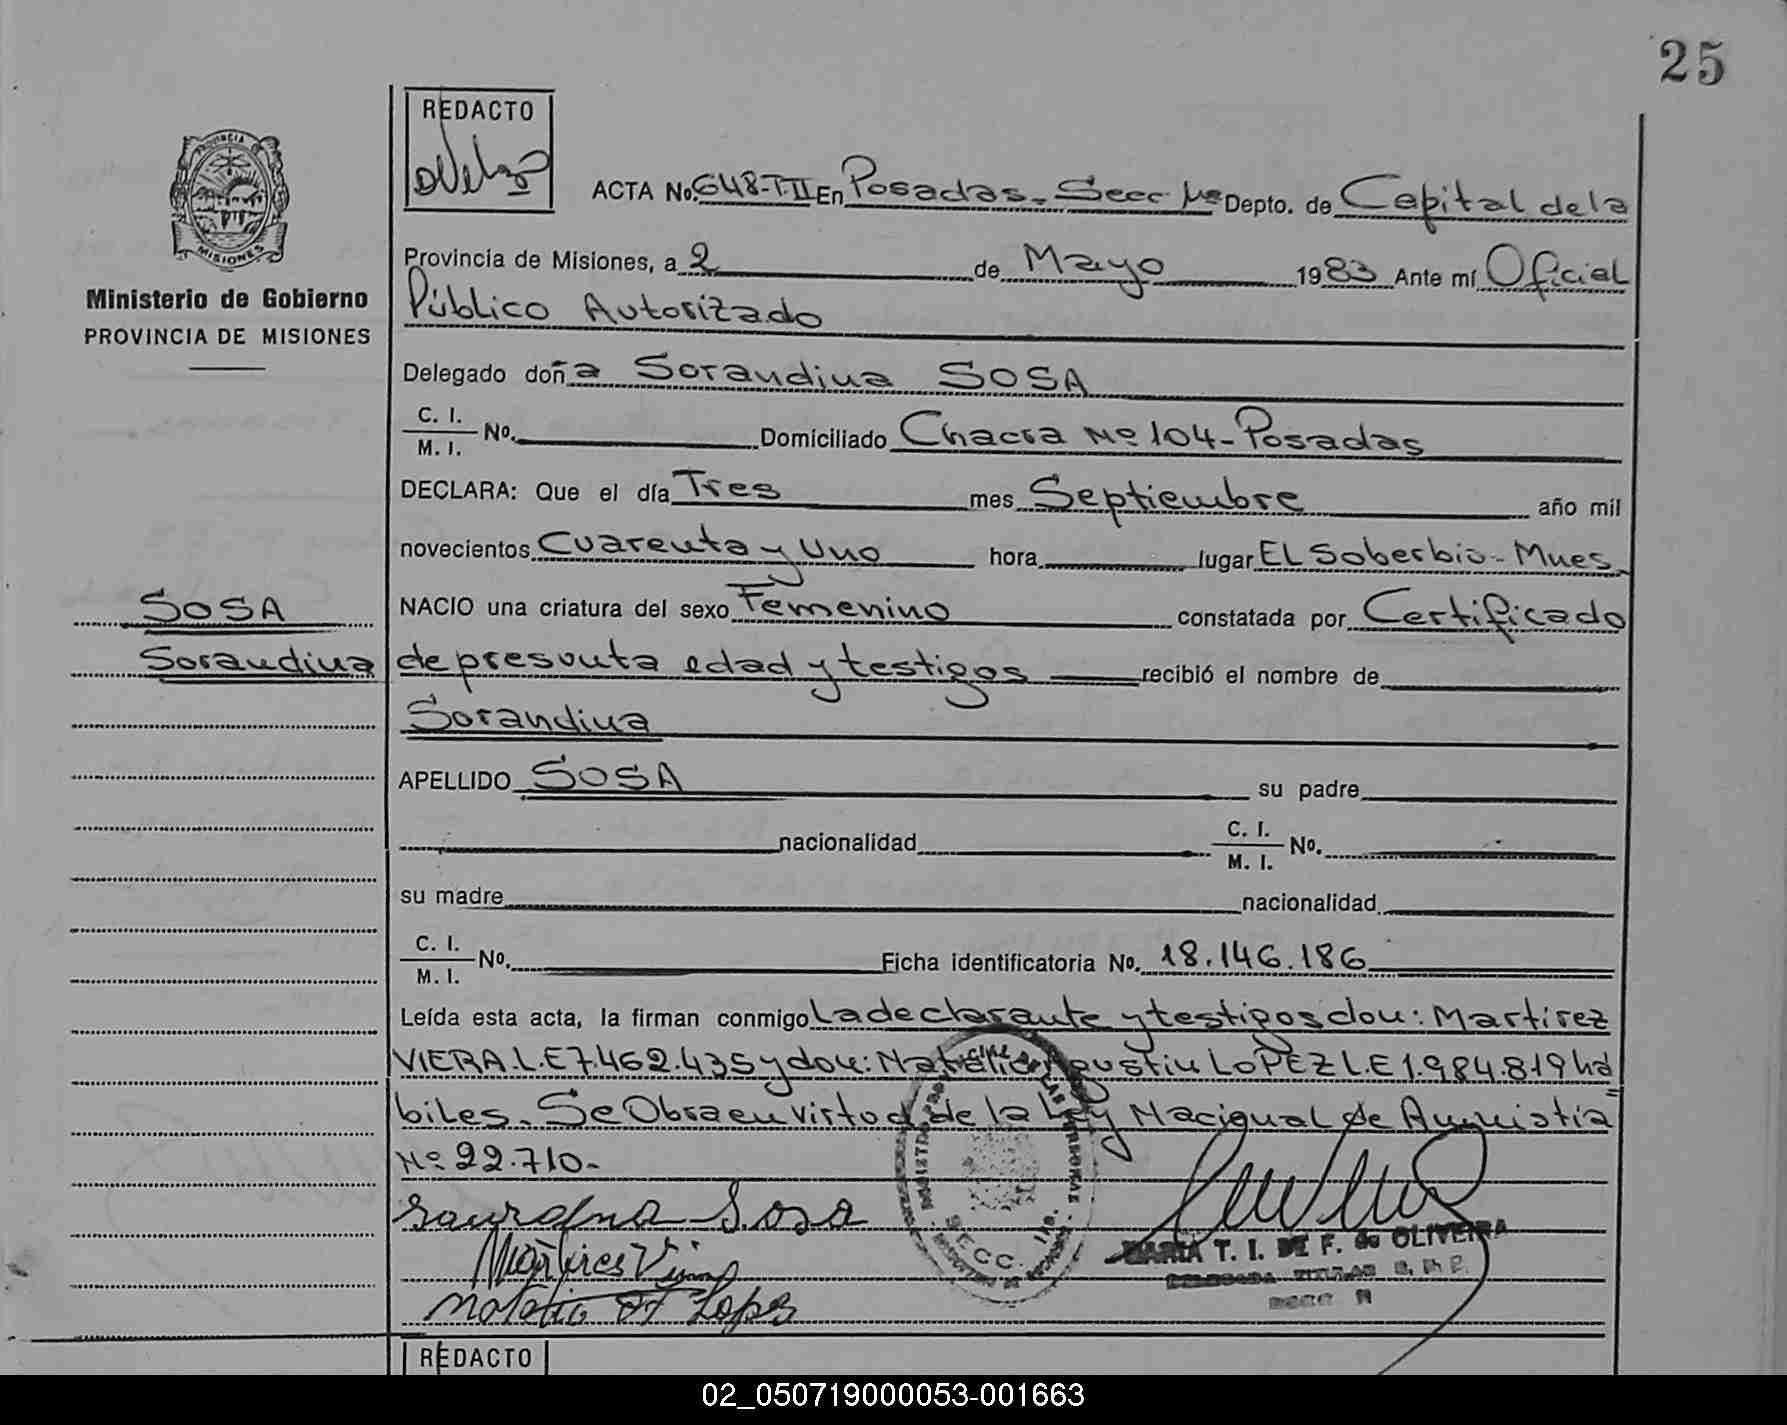 25
REDACTO
PROVINCIA DE
MISIONES
Ministerio de Gobierno
PROVINCIA DE MISIONES
ACTA No. 648-T-II En Posadas - Secc Depto. de Capital de la
Provincia de Misiones, a 2 de Mayo 1983 Ante mí Oficial
Público Autorizado
Delegado doña Sorandina SOSA
C. I.
M. I. No. Domiciliado Chacra Nº 104 - Posadas
DECLARA: Que el día Tres mes Septiembre año mil
novecientos Cuarenta y Uno hora lugar EL Soberbio - Mnes.
NACIO una criatura del sexo Femenino constatada por Certificado
SOSA
Sorandina
de presunta edad y testigos recibió el nombre de
Sorandina
APELLIDO SOSA su padre
nacionalidad C. I.
M. I. No.
su madre nacionalidad
C. I.
M. I. No. Ficha identificatoria No. 18.146.186
Leída esta acta, la firman conmigo La declarante y testigos don: Martirez
VIERA L.E 7.462.435 y don: Natalio Agustin LOPEZ L.E 1.984.819 há
biles. Se Obra en virtud de la Ley Nacional de Amnistia
Nº 22.710.-
Sosa
Lopez
MARIA T. I. DE F. de OLIVEIRA
DELEGADA TITULAR
REDACTO
02_050719000053-001663